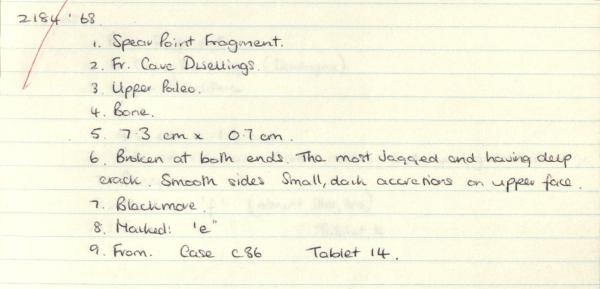 2184'68.
1. Spear Point Fragment.
2. Fr. Cave Dwellings.
3. Upper Paleo.
4. Bone.
5. 7.3 cm x 0.7cm.
6. Broken at both ends. The most jagged end having deep
crack. Smooth sides Small, dark accretions on upper face.
7. Blackmore.
8. Marked: 'e"
9. From. Case C86 Tablet 14.